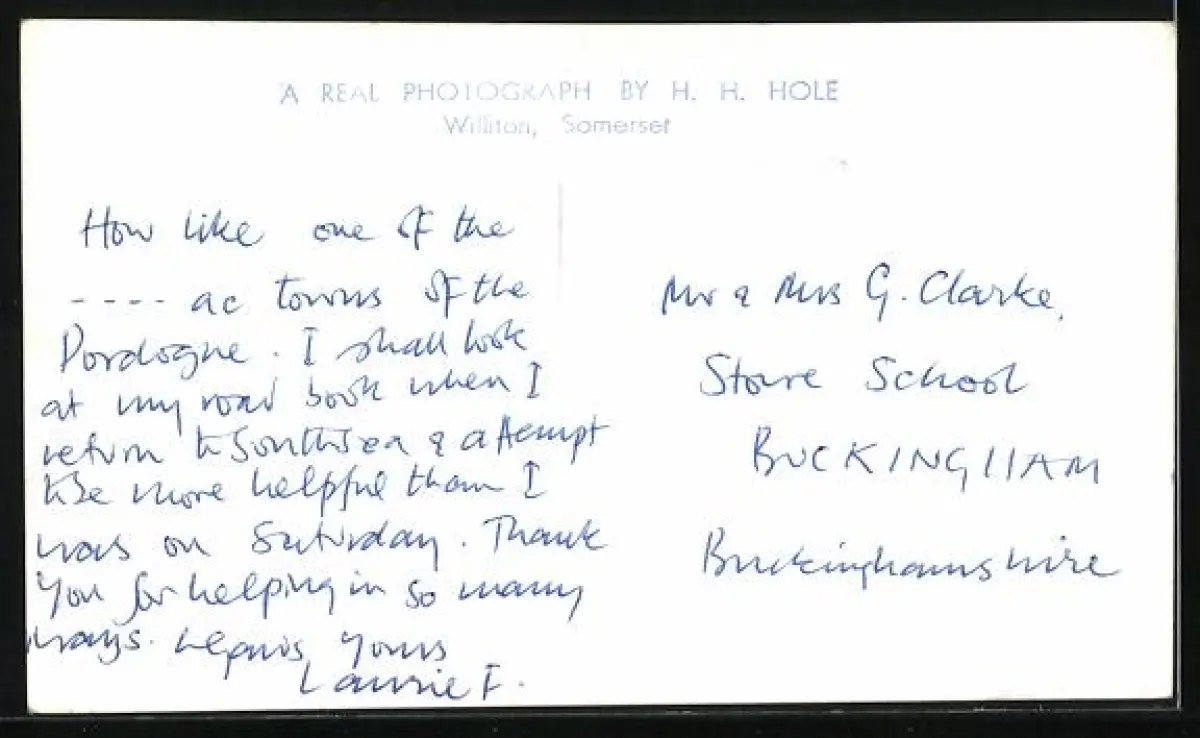 A REAL PHOTOGRAPH BY H. H. HOLE
Williton, Somerset
How like one of the
---- ac towns of the
Dordogne. I shall look
at my road book when I
return to Southsea & attempt
to be more helpful than I
was on Saturday. Thank
you for helping in so many
ways. Yours
Laurie F.
Mr & Mrs G. Clarke,
Stowe School
BUCKINGHAM
Buckinghamshire